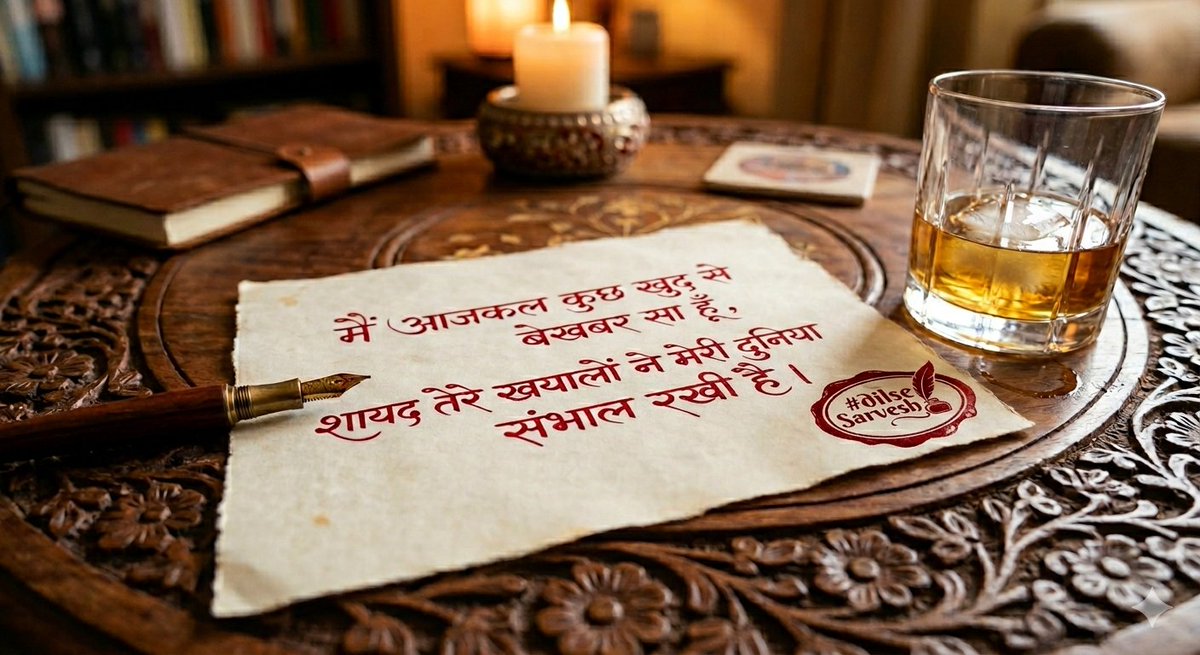 मैं आजकल कुछ खुद से
बेखबर सा हूँ,
शायद तेरे खयालों ने मेरी दुनिया
संभाल रखी है।
#dilse
Sarvesh